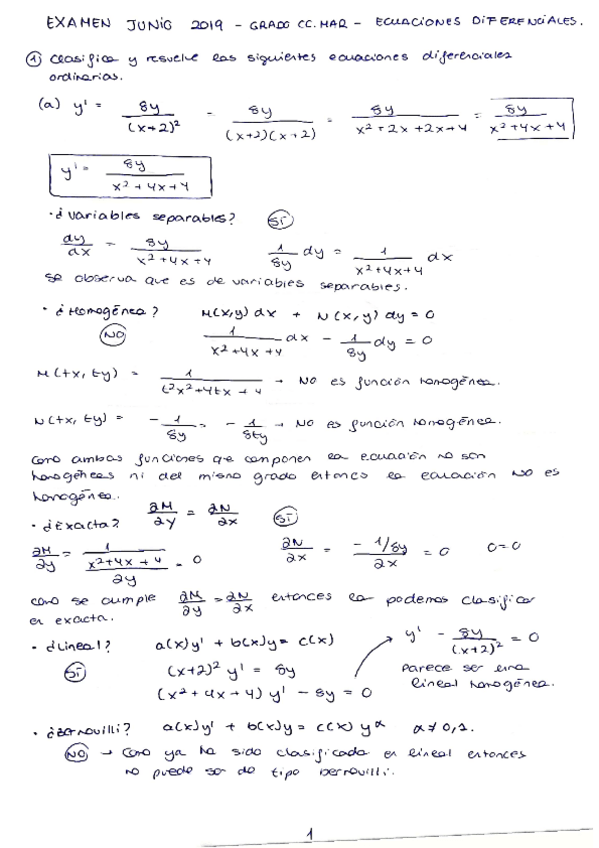 EXAMEN JUNIO 2019 - GRADO CC.MAR - ECUACIONES DIFERENCIALES.
① Clasifica y resuelve las siguientes ecuaciones diferenciales
ordinarias.
(a) y' = 8y/(x+2)² = 8y/(x+2)(x+2) = 8y/x²+2x+2x+4 = 8y/x²+4x+4
y' = 8y/x²+4x+4
· ¿Variables separables? SÍ
dy/dx = 8y/x²+4x+4 1/8y dy = 1/x²+4x+4 dx
Se observa que es de variables separables.
· ¿Homogénea? M(x,y)dx + N(x,y)dy = 0
NO 1/x²+4x+4 dx - 1/8y dy = 0
M(tx, ty) = 1/t²x²+4tx+4 → No es función homogénea.
N(tx, ty) = -1/8y = -1/8ty → No es función homogénea.
Como ambas funciones que componen la ecuación no son
homogéneas ni del mismo grado entonces la ecuación NO es
homogénea.
· ¿Exacta? ∂M/∂y = ∂N/∂x SÍ
∂M/∂y = 1/x²+4x+4/∂y = 0 ∂N/∂x = -1/8y/∂x = 0 0=0
Como se cumple ∂M/∂y = ∂N/∂x entonces la podemos clasificar
en exacta.
· ¿Lineal? a(x)y' + b(x)y = c(x) y' - 8y/(x+2)² = 0
SÍ (x+2)² y' = 8y Parece ser una
(x²+4x+4) y' - 8y = 0 lineal homogénea.
· ¿Bernouilli? a(x)y' + b(x)y = c(x) y^α α≠0,1.
NO → Como ya ha sido clasificada en lineal entonces
no puede ser de tipo bernouilli.
1